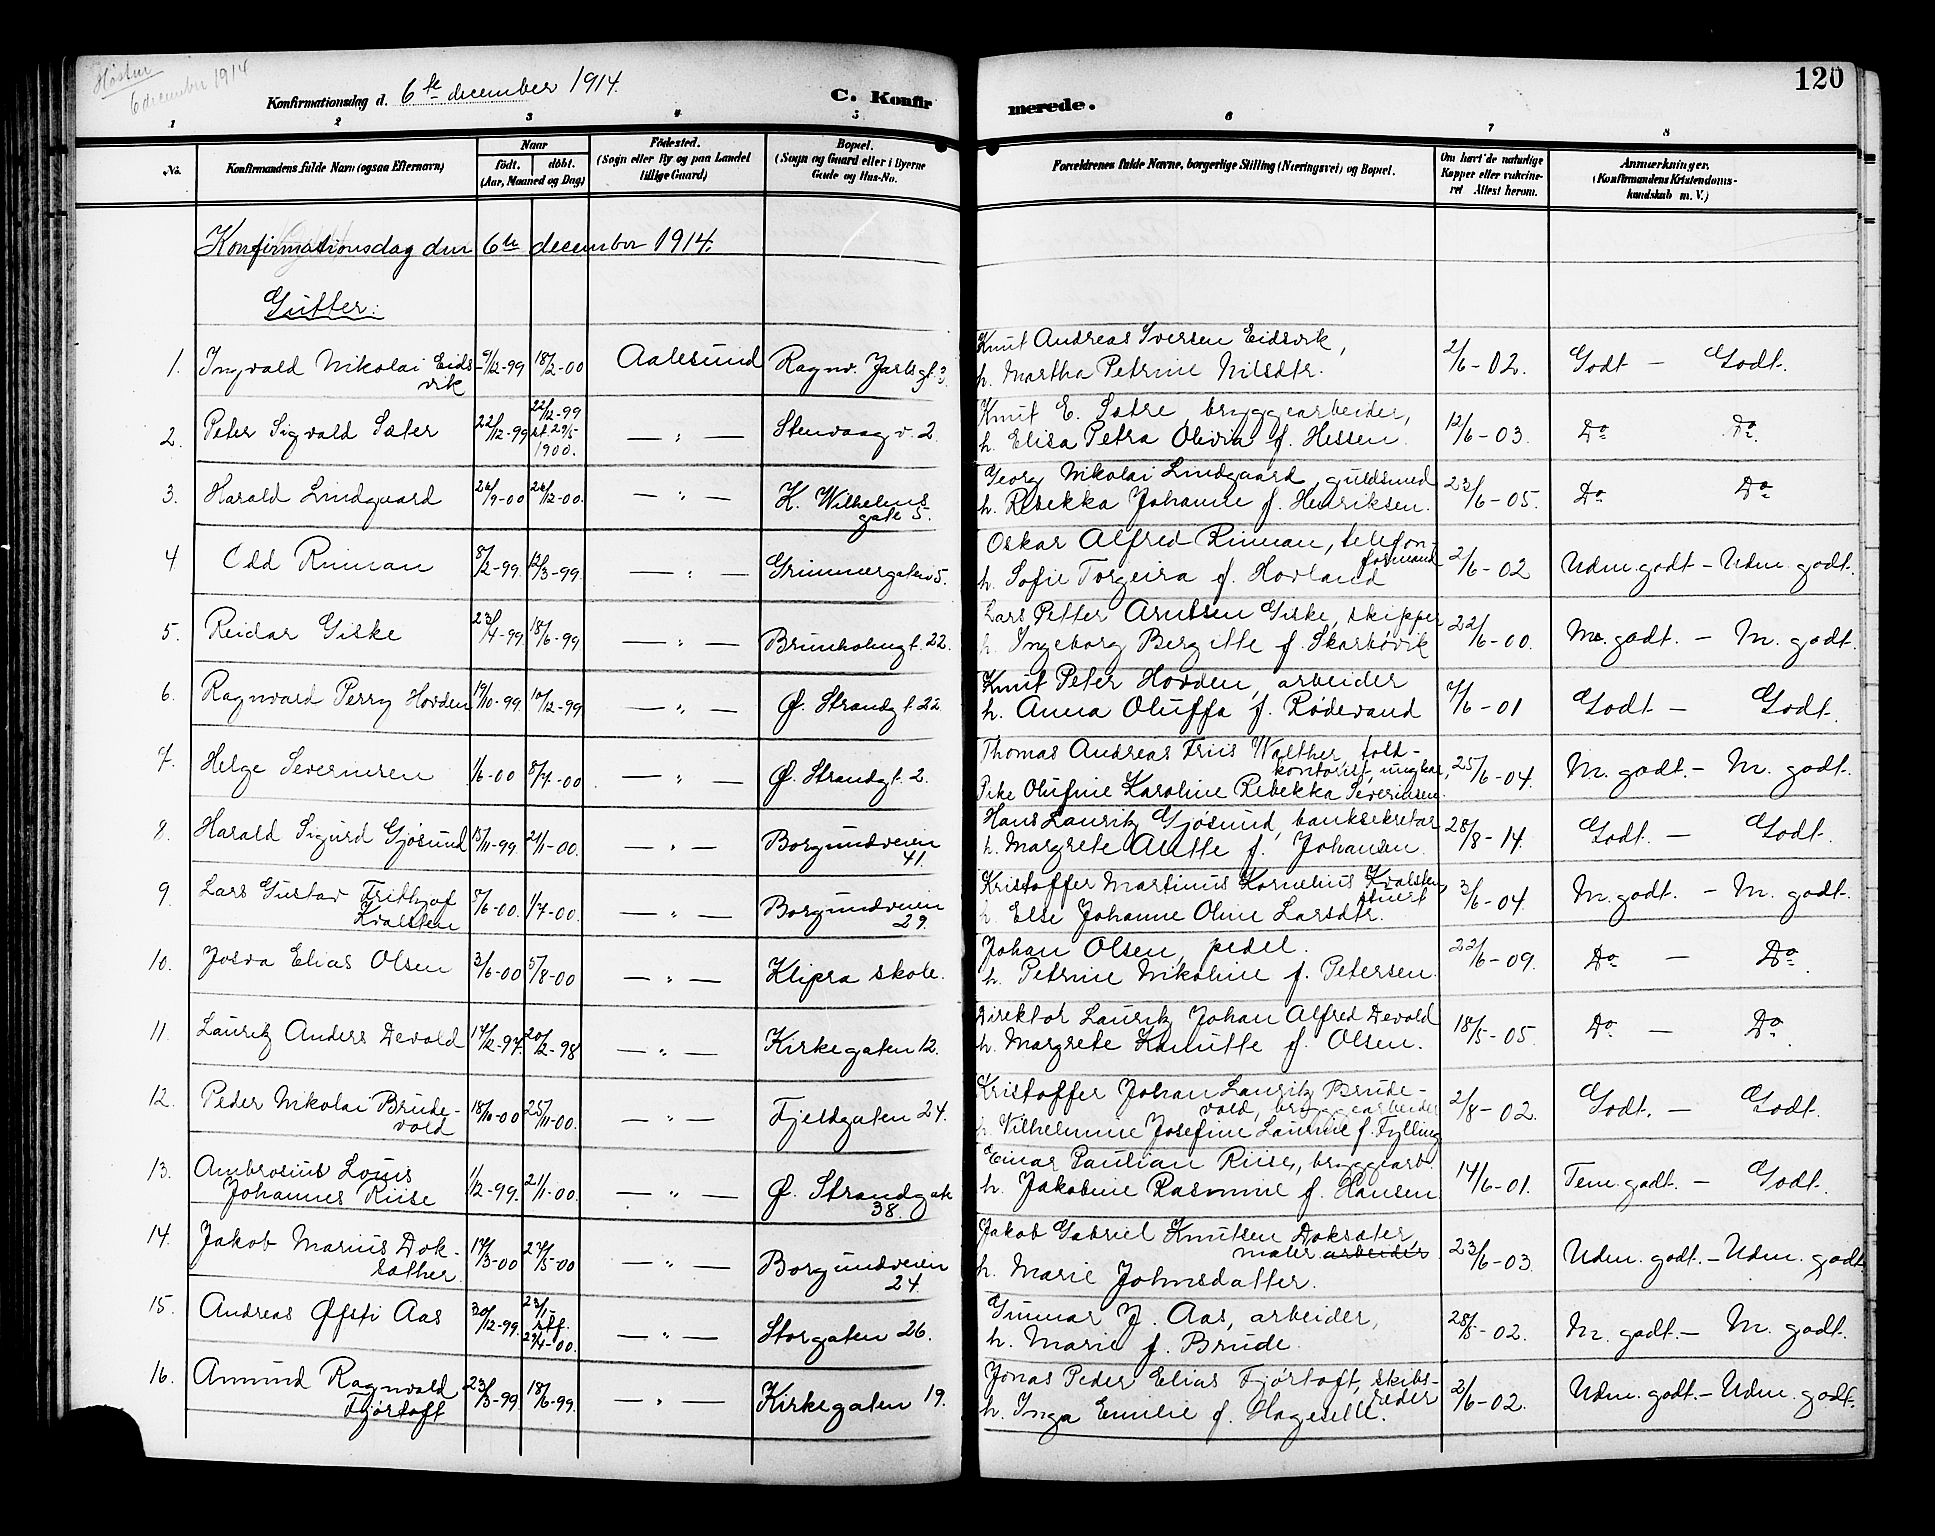 Høsten
6 december 1914
120
Konfirmationsdag d. 6te december 1914.
C. Konfirmerede.
1 2 3 4 5 6 7 8
No.
Konfirmandens fulde Navn (ogsaa Efternavn)
Naar
født. døbt.
(Aar, Maaned og Dag)
Fødested.
(Sogn eller By og paa Landet
tillige Gaard)
Bopæl.
(Sogn og Gaard eller i Byerne
Gade og Hus-No.
Forældrenes fulde Navne, borgerlige Stilling (Næringsvei) og Bopæl.
Om havt de naturlige
Kopper eller vakcineret Attest herom.
Anmærkninger.
(Konfirmandens Kristendomskundskab m. V.)
Konfirmationsdag den 6te december 1914.
Gutter:
1. Ingvald Nikolai Eidsvik 9/12-99 18/2-00 Aalesund Ragnv. Jarls gt. 3. Knut Andreas Iversen Eidsvik,
h. Martha Petrine Nilsdtr. 2/6-02. Godt — Godt.
2. Peter Sigvald Sæter 22/12-99 22/12-99
st. 29/5
1900. — " — Stenvaag v. 2. Knut E. Sætre, bryggearbeider,
h. Elisa Petra Olivia f. Hessen. 12/6-03. Do Do
3. Harald Lindgaard 26/9-00 26/12-00. — " — K. Wilhelms
gate 5. Georg Nikolai Lindgaard, guldsmed
h. Rebekka Johanne f. Henriksen. 23/6-05. Do Do
4 Odd Riman 8/2-99. 12/3-99. — " — Grimmergaten 5. Oskar Alfred Riman, telefonformand
h. Sofie Torgeira f. Hovland 2/6-02 Udm. godt — Udm. godt.
5. Reidar Giske 23/4-99. 18/6-99 — " — Brunholmgt. 22. Lars Petter Arntsen Giske, skipper
h. Ingeborg Bergitte f. Skarbøvik 22/6-00. M. godt. — M. godt.
6. Ragnvard Perry Hovden 19/10-99. 10/12-99 — " — Ø. Strandgt. 22. Knut Peter Hovden, arbeider
h. Anna Oluffa f. Rødevand 7/6-01 Godt — Godt.
7. Helge Severinsen 1/6-00 8/7-00 — " — Ø. Strandgt. 2. Thomas Andreas Friis Walther, toldkontorist, ungkar,
Pike Olufine Karoline Rebekka Severinsen. 25/6-04. M. godt. — M. godt.
8. Harald Sigurd Gjøsund 15/11-99. 21/1-00. — " — Borgundveien
41. Hans Lauritz Gjøsund, banksekretær
h. Margrete Anette f. Johansen. 28/8-14. Godt — Godt.
9. Lars Gustav Frithjof
Kvalsten 5/6-00. 1/7-00. — " — Borgundveien
29. Kristoffer Martinus Kornelius Kvalsten,
stuert
h. Else Johanne Oline Larsdtr. 3/6-04. M. godt. — M. godt.
10. Josva Elias Olsen 3/6-00 5/8-00 — " — Klipra skole. Johan Olsen, pedel.
h. Petrine Nikoline f. Petersen. 22/6-09. Do — Do
11. Lauritz Anders Devold 14/12-97. 20/2-98 — " — Kirkegaten 12. Direktør Lauritz Johan Alfred Devold
h. Margrete Kamitte f. Olsen. 18/5-05. Do — Do
12. Peder Nikolai Brudevold 18/10-00 25/11-00. — " — Fjeldgaten 24. Kristoffer Johan Lauritz Brudevold, bryggearbeider
h. Vilhelmine Josefine Laurine f. Fylling 2/8-02. Godt. — Godt.
13. Ambrosius Louis
Johannes Riise 1/12-99. 21/1-00. — " — Ø. Strandgate
38. Einar Paulian Riise, bryggearb.
h. Jakobine Rasmine f. Hansen 14/6-01. Tem. godt. — Godt.
14. Jakob Marius Doksæther. 14/3-00 27/5-00 — " — Borgundveien
24. Jakob Gabriel Knutsen Doksæter,
maler arbeider
h. Marie Johnsdatter. 23/6-03 Udm. godt. — Udm. godt
15. Andreas Øfsti Aas 30/12-99. 23/1
stf.
29/4-00. — " — Storgaten 26. Gunnar J. Aas, arbeider,
h. Marie f. Brude. 28/5-02. M. godt. — M. godt.
16. Amund Ragnvald
Fjørtoft 23/3-99 18/6-99. — " — Kirkegaten 19. Jonas Peder Elias Fjørtoft, skibsreder
h. Inga Emilie f. Hageselle. 2/6-02. Udm. godt. — Udm. godt.